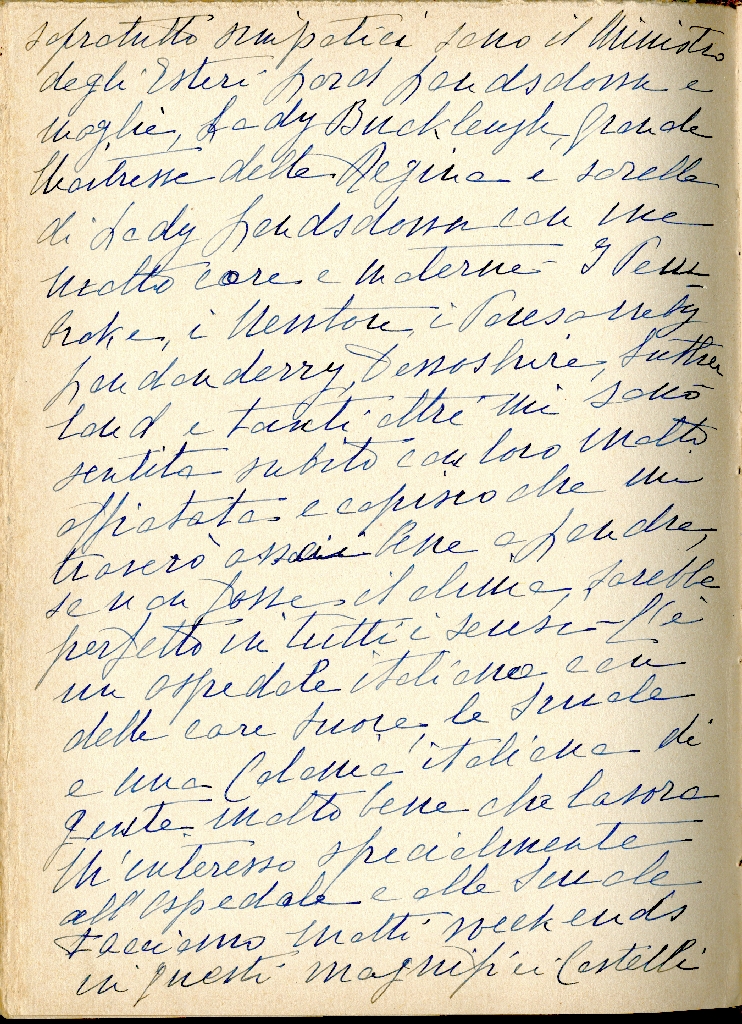 sopratutto simpatici sono il Ministro
degli Esteri Lord Landsdown e
moglie, Lady Buckleugh, grande
Maitresse della Regina e sorella
di Lady Landsdown con me
molto care e materne - I Pem
broke, i i Ponsomby
Londonderry, Suther
land e tanti altri mi sono
sentita subito con loro molto
affiatata e capisco che mi
troverò assai bene a Londra,
se non fosse il clima, sarebbe
perfetto in tutti i sensi - C'è
un ospedale italiano con
delle care suore, le Scuole
e una Colonia italiana di
gente molto bene che lavora
M'interesso specialmente
all'Ospedale e alle Scuole
Facciamo molti weekends
in questi magnifici Castelli